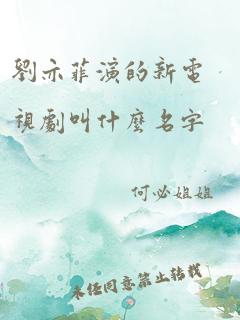 劉亦菲演的新電
視劇叫什麼名字
何必姐姐
未經同意禁止轉載